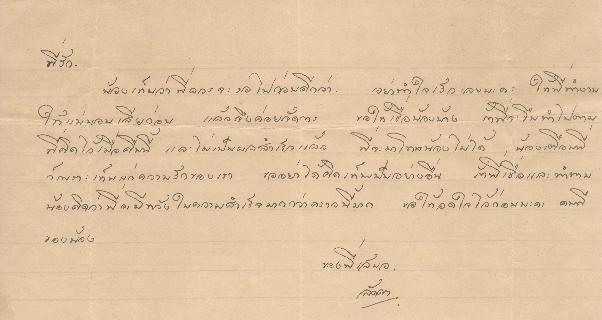 พี่รัก.
น้องเห็นว่าพี่ควรจะรอไปก่อนดีกว่า. อย่าทำใจเร็วเลยนะคะ ให้พี่ทำงาน
ให้แน่นอนเสียก่อน แล้วจึงค่อยจัดการ ขอให้เชื่อน้องบ้าง ถ้าพี่จะขืนทำไปตาม
ที่คิดไว้เมื่อคืนนี้ และไม่เป็นผลสำเร็จแล้ว พี่จะมาโทษน้องไม่ได้ น้องเตือนพี่
ก็เพราะเห็นแก่ความรักของเรา ขออย่าได้คิดเห็นเป็นอย่างอื่น ถ้าพี่เชื่อและทำตาม
น้องคิดว่าพี่จะมีหวังในความสำเร็จมากกว่าคราวนี้มาก ขอให้อดใจไว้ก่อนนะคะ คนดี
ของน้อง
ของพี่เสมอ.